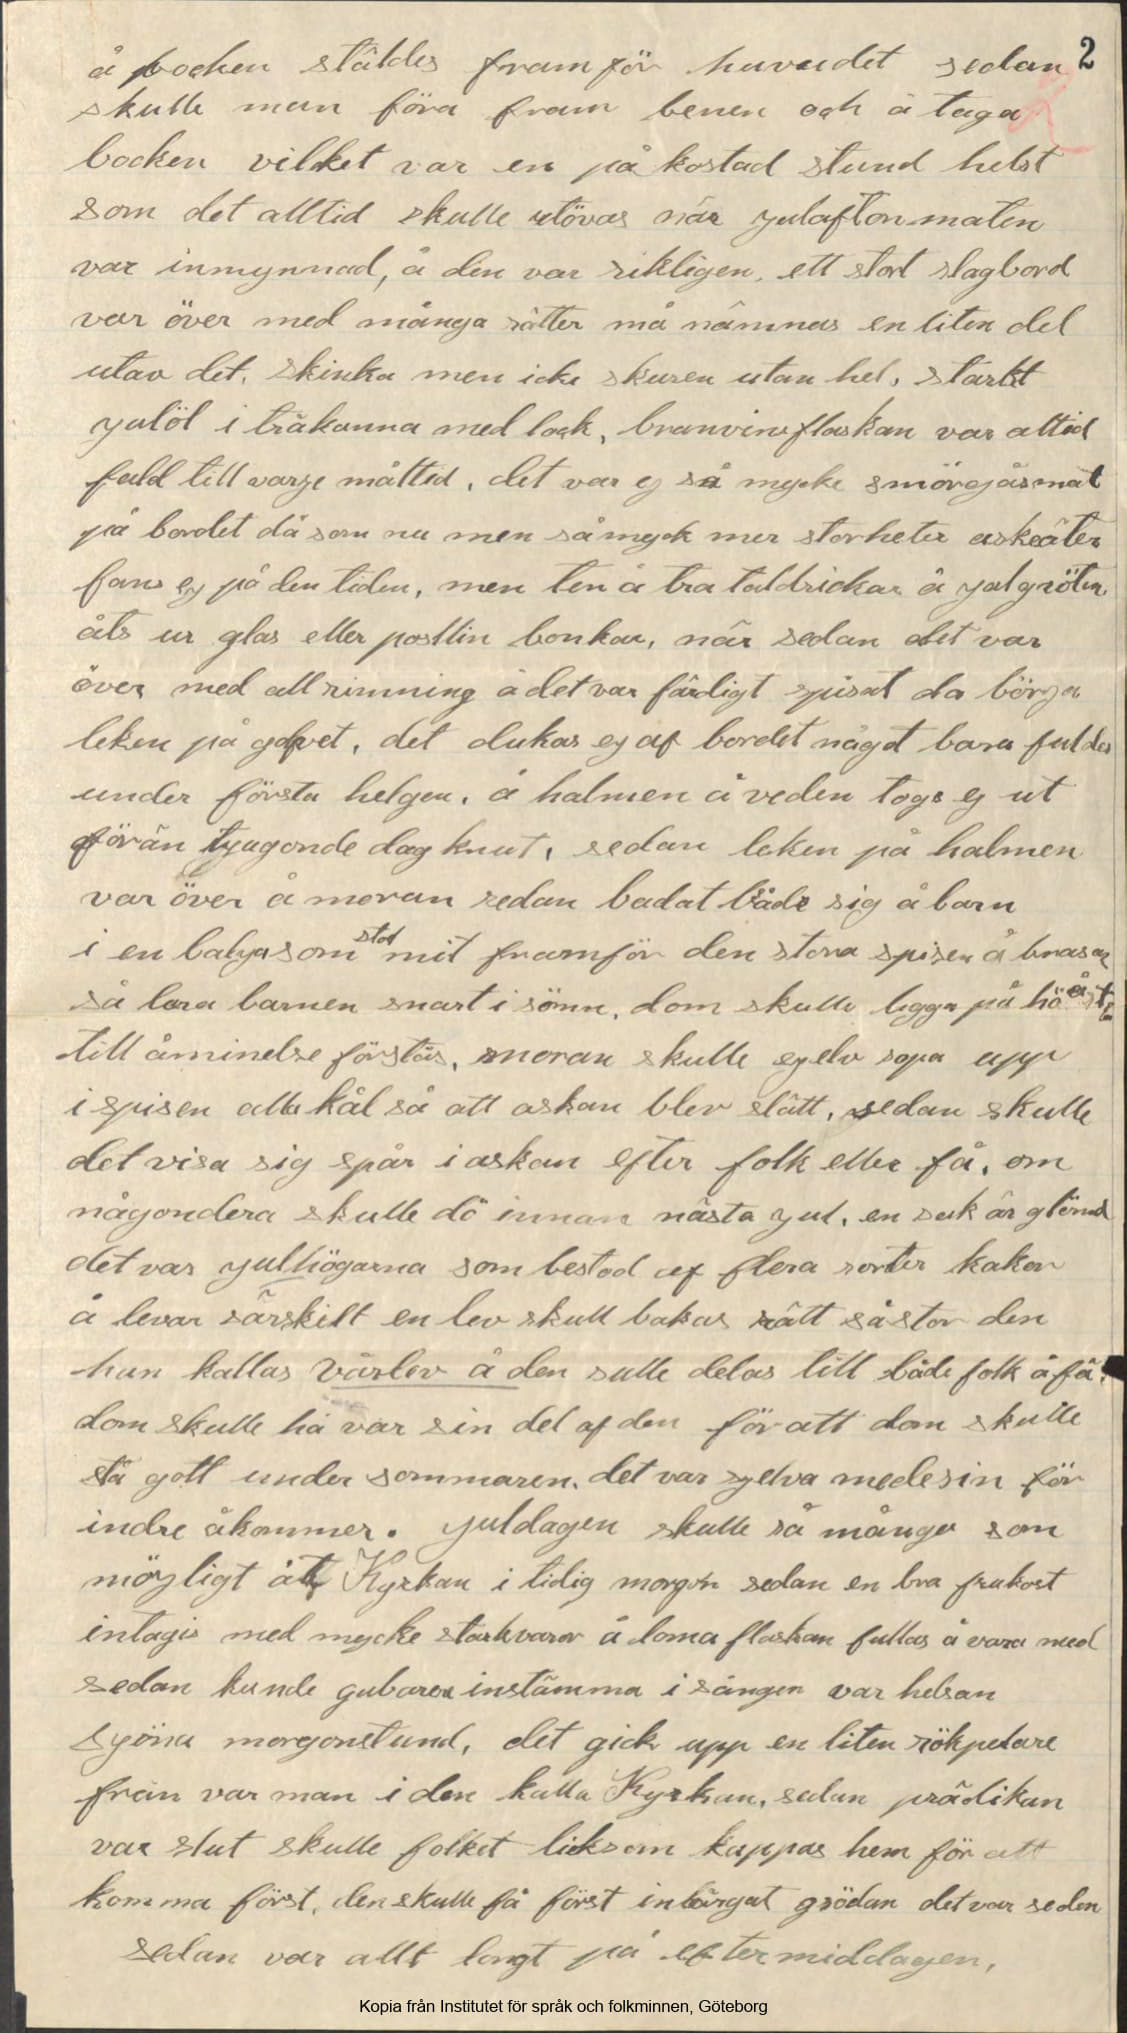 2
å bocken stäldes framför huvudet sedan
skulle man föra fram benen och å taga
bocken vilket var en på kostad stund helst
som det alltid skulle utövas när julafton maten
var inmynnad, å den var rikligen, ett stort slagbord
var över med många rätter må nämnas en liten del
utav det, skinka men icke skuren utan hel, starkt
julöl i träkanna med lock, branvinsflaskan var alltid
fuld till varje måltid, det var ej så mycke smörgåsmat
på bordet då som nu men så myck mer storheter
fans ej på den tiden, men ten å tra taldrickar å julgröten
åts ur glas eller postlin bonkar, när sedan det var
över med all rimning å det var färdigt spisat da börja
leken på golvet, det dukas ej af bordet något bara fuldes
under första helgen, å halmen å veden togs ej ut
förän tjugonde dag knut, sedan leken på halmen
var över å moran sedan badat både sig å barn
i en balja som stod mit framför den stora spisen å brasan
så lara barnen snart i sömn, dom skulle ligga på hö
till åminelse förstås, moran skulle ejelv sopa upp
i spisen alla kål så att askan blev slätt, sedan skulle
det visa sig spår i askan efter folk eller få, om
någondera skulle dö innan nästa jul, en sak är glömd
det var julhögarna som bestod af flera sorter kakor
å levar särskilt en lev skull bakas rätt så stor den
hun kallas vårlev å den sulle delas till både folk å få,
dom skulle ha var sin del af den för att dom skulle
stå gott under sommaren, det var sjelva medesin för
indre åkommer. Juldagen skulle så många som
möjligt åt Kyrkan i tidig morgon sedan en bra frukost
intagis med mycke starkvaror å loma flaskan fullas å vara med
sedan kunde gubarna instämma i sången var helsan
sjöna morgonstund, det gick upp en liten rökpelare
från var man i den kalla Kyrkan, sedan prädikan
var slut skulle folket liksom kappas hem för att
komma först, den skulle få först inbärgat grödan det var seden
sedan var allt langt på eftermiddagen,
Kopia från Institutet för språk och folkminnen, Göteborg